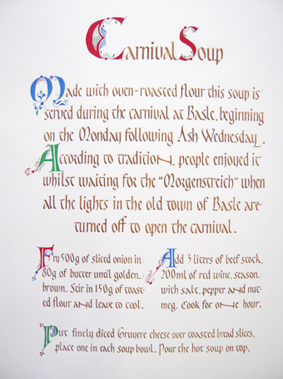 Carnival Soup
Made with oven-roasted flour this soup is
served during the carnival at Basle, beginning
on the Monday following Ash Wednesday.
According to tradition, people enjoyed it
whilst waiting for the "Morgenstreich" when
all the lights in the old town of Basle are
turned off to open the carnival.
Fry 500g of sliced onion in
80g of butter until golden
brown. Stir in 150g of toast
ed flour and leave to cool.
Add 3 liters of beef stock,
200ml of red wine, season
with salt, pepper and nut
meg. Cook for one hour.
Put finely diced Gruyere cheese over toasted bread slices,
place one in each soup bowl. Pour the hot soup on top.